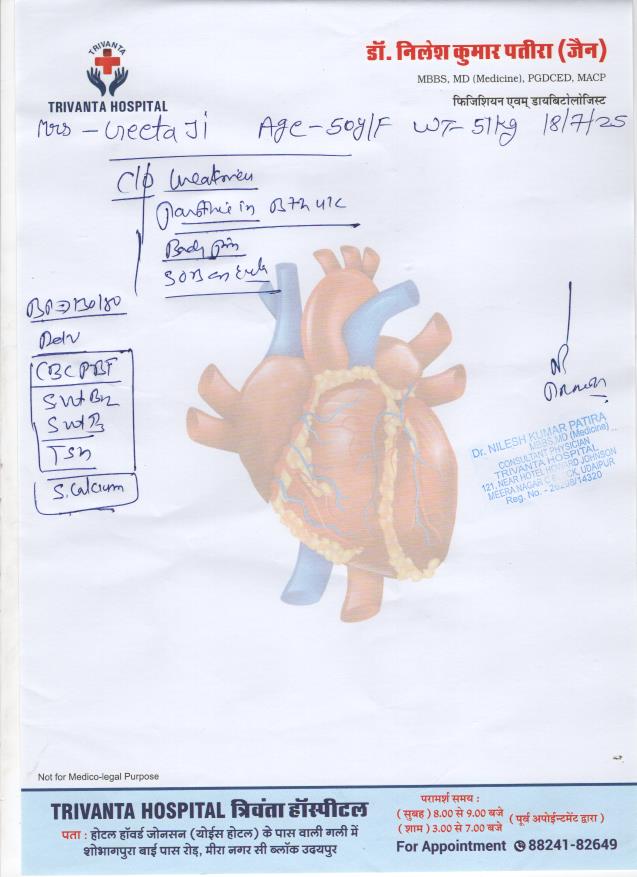 TRIVANTA
TRIVANTA HOSPITAL
डॉ. निलेश कुमार पतीरा (जैन)
MBBS, MD (Medicine), PGDCED, MACP
फिजिशियन एवम् डायबिटोलोजिस्ट
Mrs - Geeta Ji Age - 50y/F WT- 51kg 18/7/25
C/o Weakness
in
Body Pain
SOB on
BP => 130/80
Adv
CBC PBF
TSH
S. Calcium
Dr. NILESH KUMAR PATIRA
MBBS, MD (Medicine)
CONSULTANT PHYSICIAN
TRIVANTA HOSPITAL
121, NEAR HOTEL HOWARD JOHNSON
MEERA NAGAR C BLOCK, UDAIPUR
Reg. No. -
Not for Medico-legal Purpose
TRIVANTA HOSPITAL त्रिवंता हॉस्पीटल
पता : होटल हॉवर्ड जोनसन (योईस होटल) के पास वाली गली में
शोभागपुरा बाई पास रोड़, मीरा नगर सी ब्लॉक उदयपुर
परामर्श समय :
( सुबह ) 8.00 से 9.00 बजे
( शाम ) 3.00 से 7.00 बजे
( पूर्व अपोईन्टमेंट द्वारा )
For Appointment 88241-82649